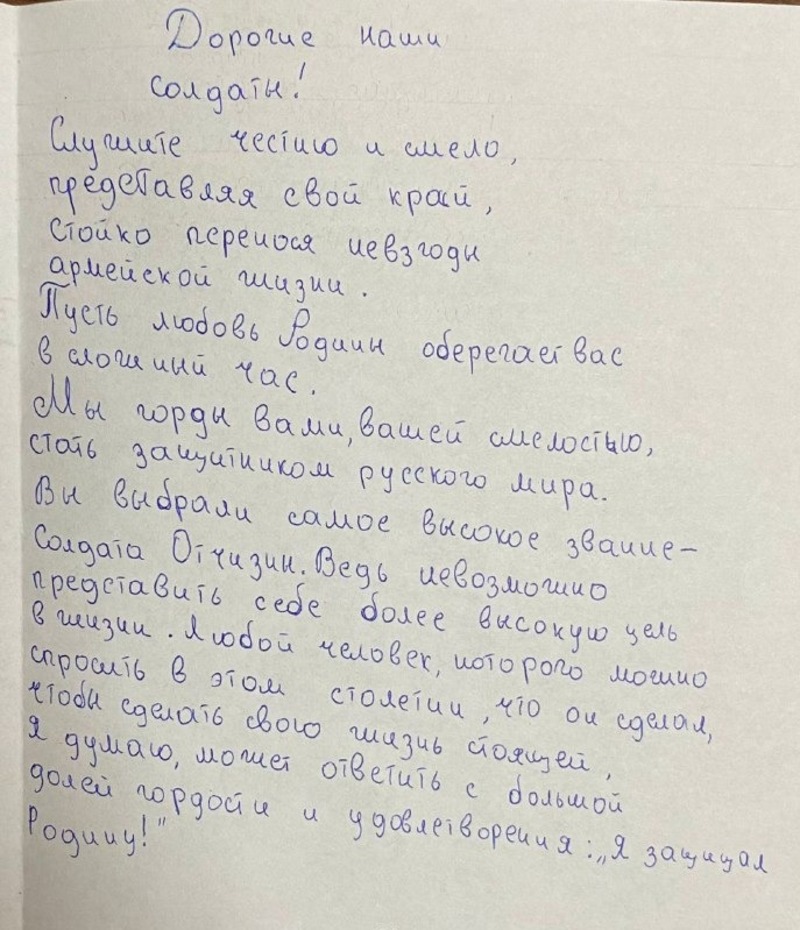 Дорогие наши
солдаты!
Служите честно и смело,
представляя свой край,
стойко перенося невзгоды
армейской жизни.
Пусть любовь Родины оберегает вас
в сложный час.
Мы горды вами, вашей смелостью,
стать защитником русского мира.
Вы выбрали самое высокое звание-
Солдата Отчизны. Ведь невозможно
представить себе более высокую цель
в жизни. Любой человек, которого можно
спросить в этом столетии, что он сделал,
чтобы сделать свою жизнь стоящей,
я думаю, может ответить с большой
долей гордости и удовлетворения: „Я защищал
Родину!"